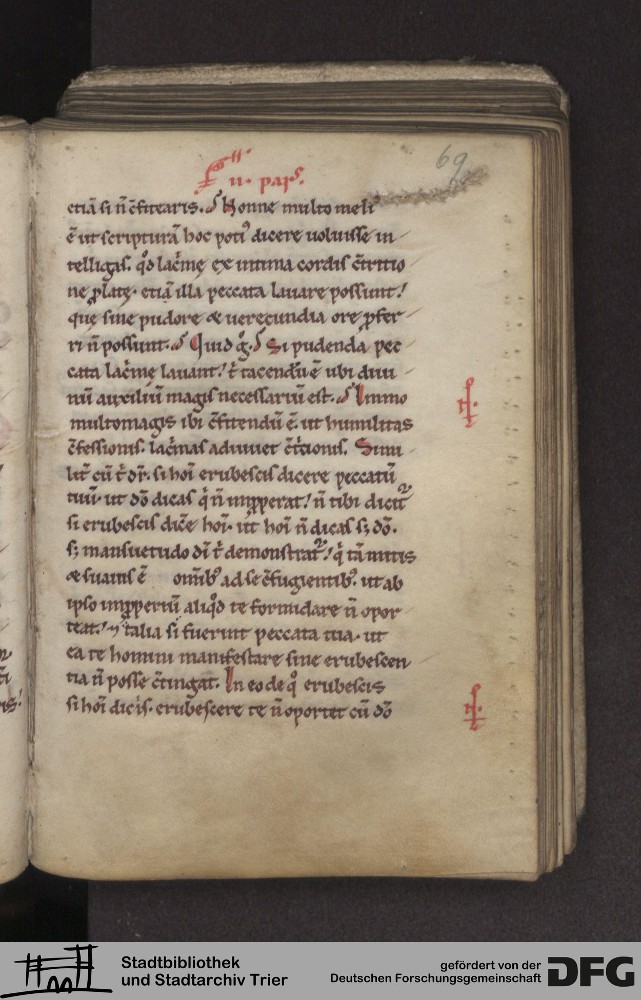 69
ıı. parſ.
etiā ſi n̄ c̄fitearis. Nonne multo meli᷒
ē ut ſcripturā hoc poti᷒ dicere uoluiſſe in
telligas. qd̄ lac̄me ex intima cordis c̄tritio
ne ꝓlate. etiā illa peccata lauare poſſunt!
que ſine pudore & uerecundia ore ꝓfer
ri n̄ poſſunt. Quid g̊. Si pudenda pec
cata lac̄me lauant! t̄ tacendū ē ubi diui
nū auxiliū magis neceſſariū est. Immo
multomagis ibi c̄fitendū ē. ut humilitas
c̄feſſionis. lac̄mas adiuuet c̄t̄cionis. Simi
lit̄ cū t̄ dr̄. ſi hoī erubeſcis dicere peccatū
tuū. ut dō dicas q̄ n̄ imꝓperat! n̄ tibi dicit᷑
ſi erubeſcis dic̄e hoī. ut hoī n̄ dicas ſ; dō.
ſ; manſuetudo dī t̄ demonſtrat᷑! q̄ tā mitis
& ſuauis ē omīb᷒ ad ſe c̄fugientib᷒. ut ab
ipſo imꝓperiū aliqd̄ te formidare n̄ opor
teat! ⁊ talia ſi fuerint peccata tua. ut
ea te homini manifeſtare ſine erubeſcen
tia n̄ poſſe c̄tingat. In eo de q̊ erubeſcis
ſi hoī dicis. erubeſcere te n̄ oportet cū dō
Stadtbibliothek
und Stadtarchiv Trier
gefördert von der
Deutschen Forschungsgemeinschaft
DFG